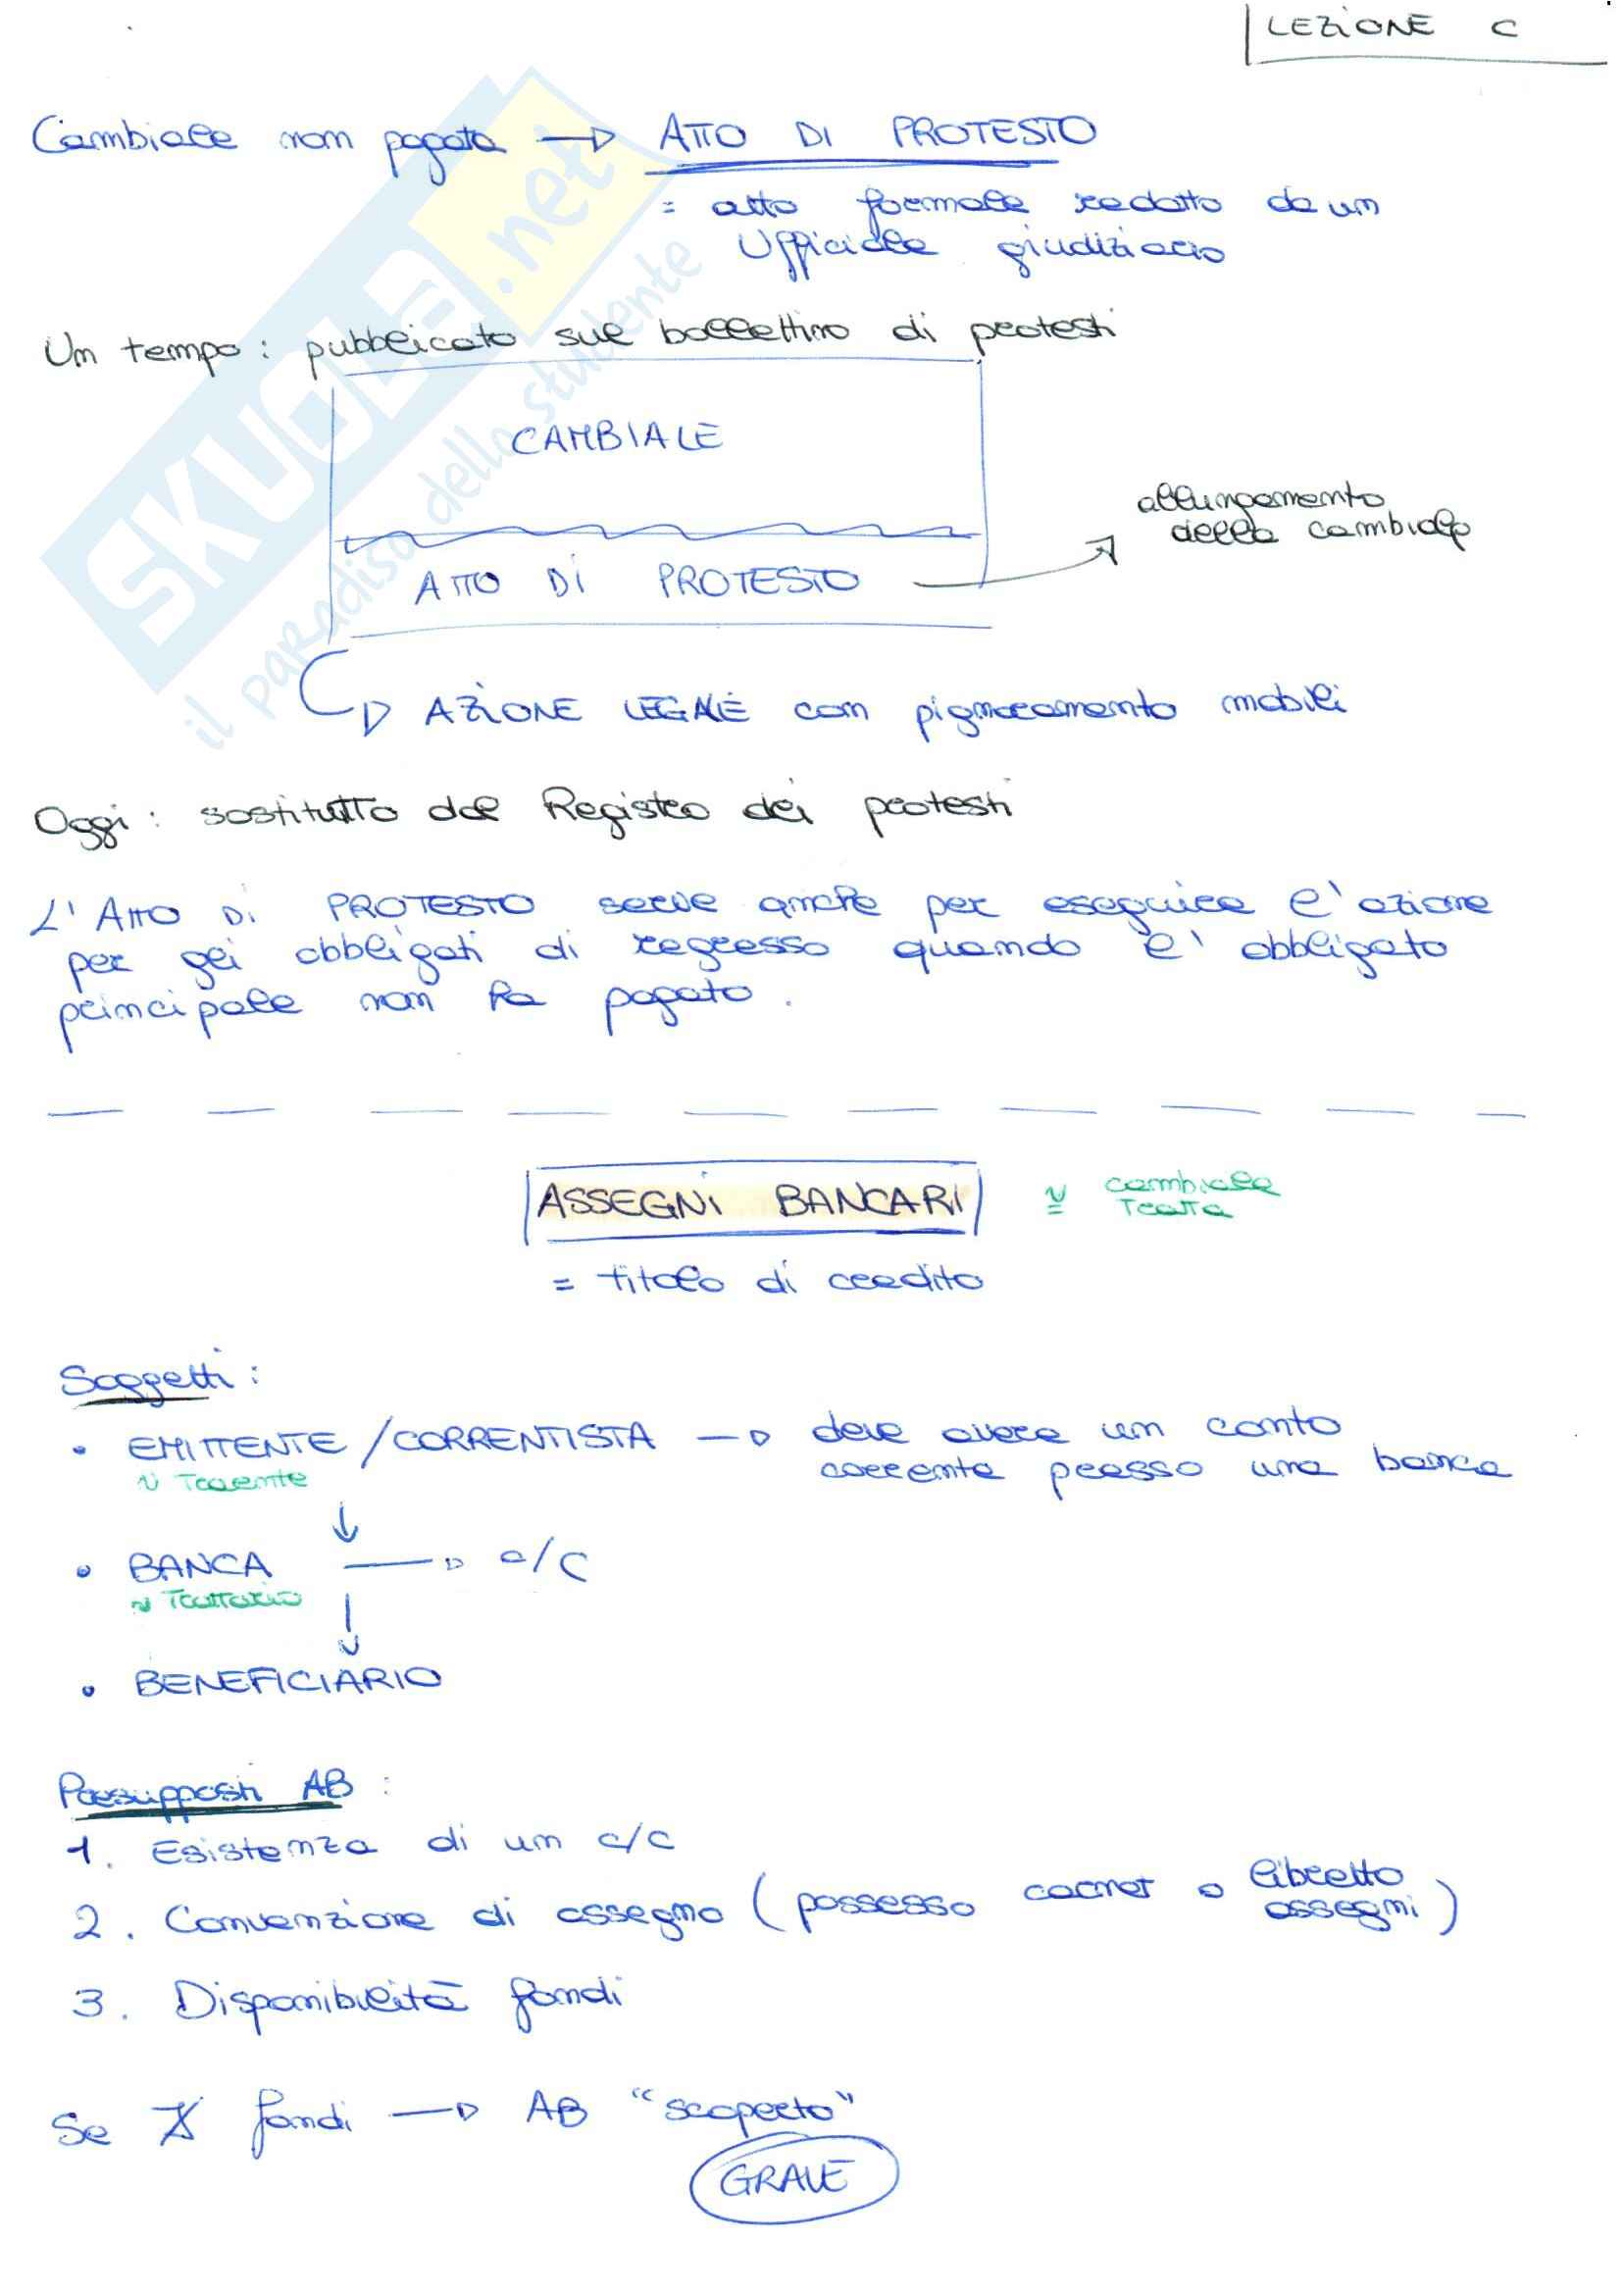 LEZIONE C
Cambiale non pagata → ATTO DI PROTESTO
= atto formale redatto da un
Ufficiale giudiziario
Un tempo: pubblicato sul bollettino di protesti
CAMBIALE
allungamento
della cambiale
ATTO DI PROTESTO
AZIONE LEGALE con pignoramento mobili
Oggi: sostituito dal Registro dei protesti
L'ATTO DI PROTESTO serve anche per eseguire l'azione
per gli obbligati di regresso quando l'obbligato
principale non ha pagato.
ASSEGNI BANCARI ≅ cambiale
Tratta
= titolo di credito
Soggetti:
• EMITTENTE/CORRENTISTA → deve avere un conto
corrente presso una banca
~ Traente
↓
• BANCA → c/c
~ Trattario
↓
• BENEFICIARIO
Presupposti AB:
1. Esistenza di un c/c
2. Convenzione di assegno (possesso carnet o libretto
assegni)
3. Disponibilità fondi
Se ∄ fondi → AB "scoperto"
GRAVE
SKUOLA.net
il paradiso dello studente